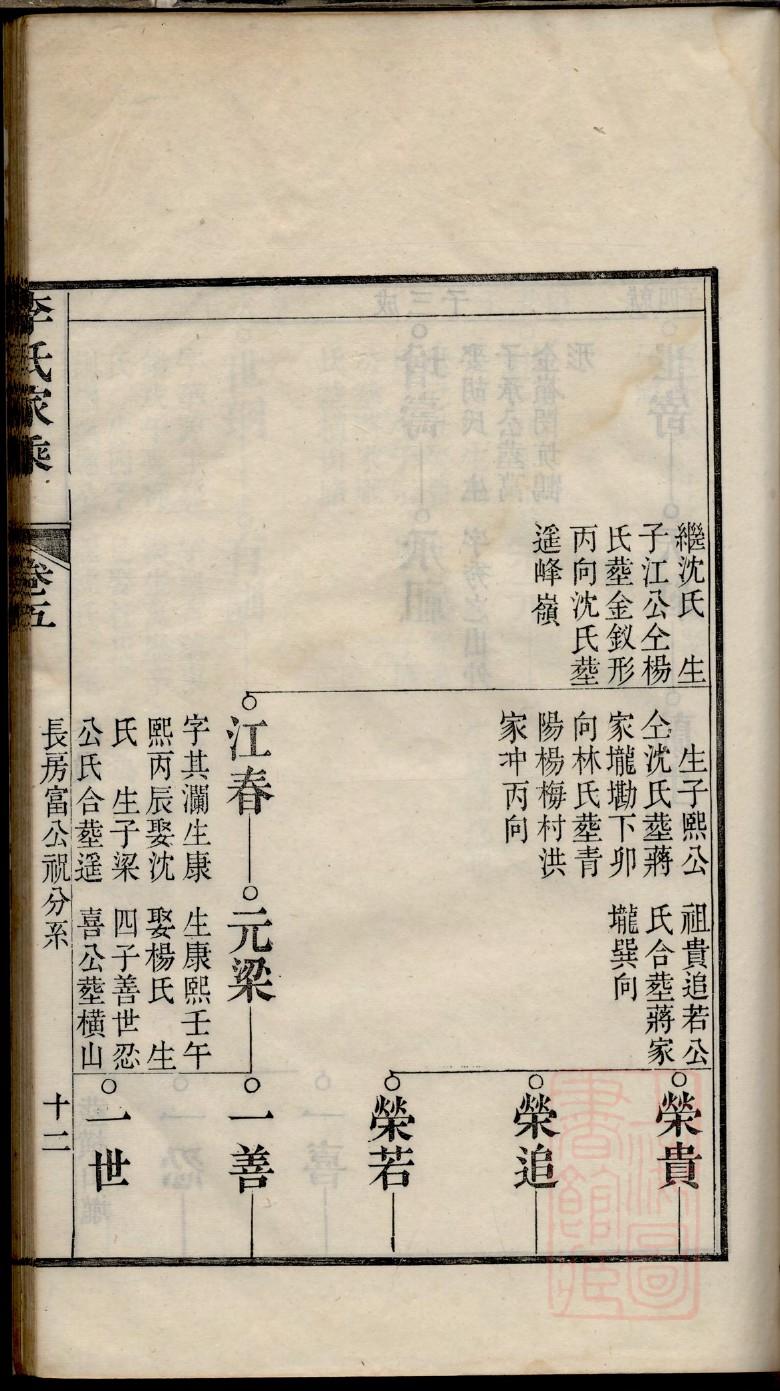 繼沈氏　生
子江公仝楊
氏塟金釵形
丙向沈氏塟
遥峰嶺
生子熙公
仝沈氏塟蔣
家壠墈下卯
向林氏塟青
陽楊梅村洪
家冲丙向
祖貴追若公
氏合塟蔣家
壠巽向
榮貴
榮追
榮若
江春
字其瀾生康
熙丙辰娶沈
氏　生子梁
公氏合塟遥
元梁
生康熙壬午
娶楊氏　生
四子善世忍
喜公塟橫山
一善
一世
長房富公祝分系
十二
李氏家乘
卷五